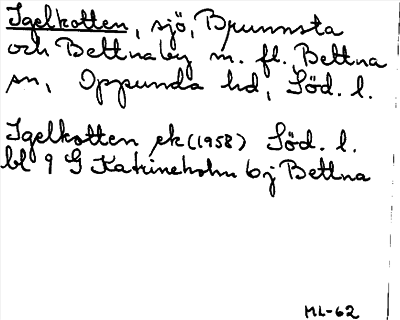 Igelkotten, sjö, Brunnsta
och Bettnaby m. fl. Bettna
sn, Oppunda hd, Söd. l.
Igelkotten ek (1958) Söd. l.
bl 9 G Katrineholm bj Bettna
ML-62